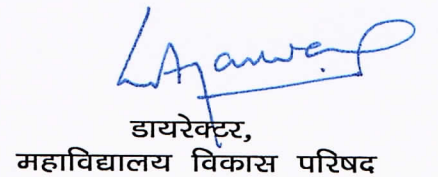 डायरेक्टर,
महाविद्यालय विकास परिषद